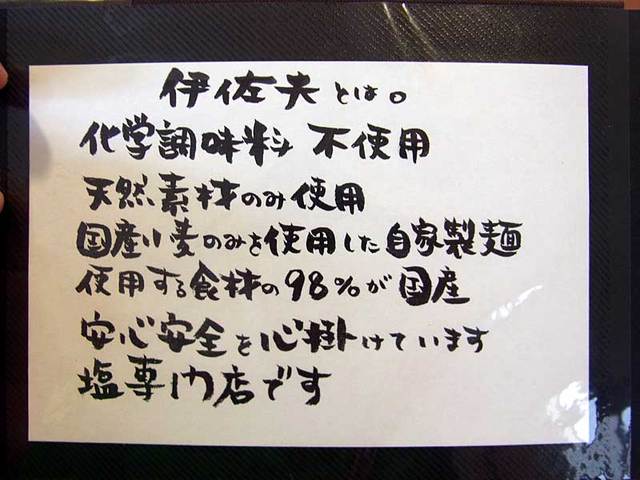 伊佐夫とは。
化学調味料 不使用
天然素材のみ使用
国産小麦のみを使用した自家製麺
使用する食材の98%が国産
安心安全を心掛けています
塩専門店です